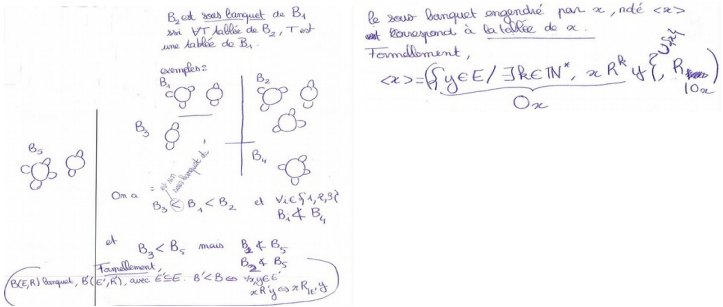 B₂ est sous banquet de B₁
ssi ∀T tablée de B₂, T est
une tablée de B₁.
exemples :
B₁
B₂
B₃
B₄
B₅
est un sous banquet de
On a B₃ < B₁ < B₂ et ∀i∈{1,2,3}
Bᵢ ≮ B₄
et B₃ < B₅ mais B₂ ≮ B₅
B₂ ≮ B₅
Formellement,
B(E,R) banquet, B'(E',R'), avec E'⊆E. B' < B ⇔ ∀x,y∈E'
xR'y ⇔ xR|E' y
le sous banquet engendré par x, noté <x>
correspond à la tablée de x.
Formellement,
<x> = ({y∈E / ∃k∈ℕ*, x Rᵏ y} ∪{x}, R
|Ox)
Ox